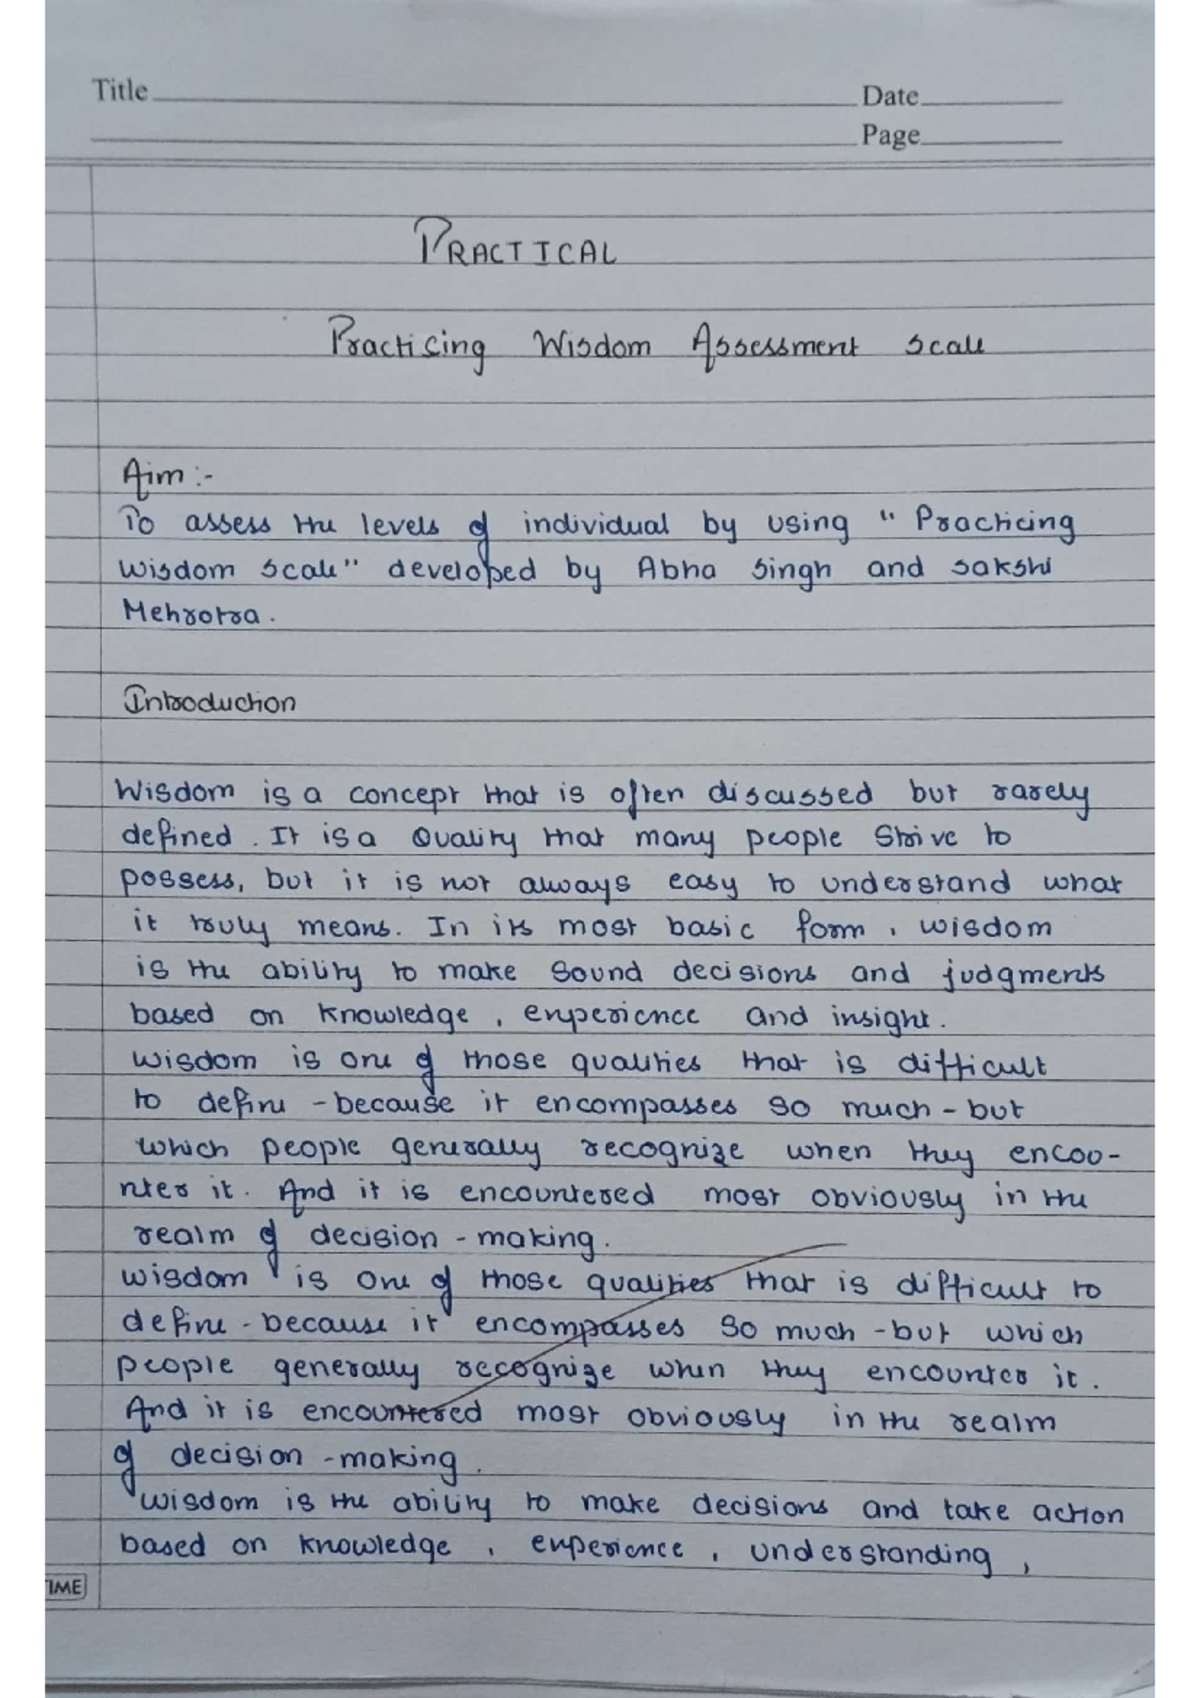 Title
Date
Page
PRACTICAL
Practicing Wisdom Assessment Scale
Aim :-
To assess the levels of individual by using "Practicing
Wisdom Scale" developed by Abha Singh and Sakshi
Mehrotra.
Introduction
Wisdom is a concept that is often discussed but rarely
defined. It is a Quality that many people Strive to
possess, but it is not always easy to understand what
it truly means. In its most basic form, wisdom
is the ability to make Sound decisions and judgments
based on knowledge, experience and insight.
Wisdom is one of those qualities that is difficult
to define - because it encompasses so much - but
which people generally recognize when they encou-
nter it. And it is encountered most obviously in the
realm of decision - making.
Wisdom is one of those qualities that is difficult to
define - because it encompasses so much - but which
people generally recognize when they encounter it.
And it is encountered most obviously in the realm
of decision - making.
Wisdom is the ability to make decisions and take action
based on knowledge, experience, understanding,
TIME